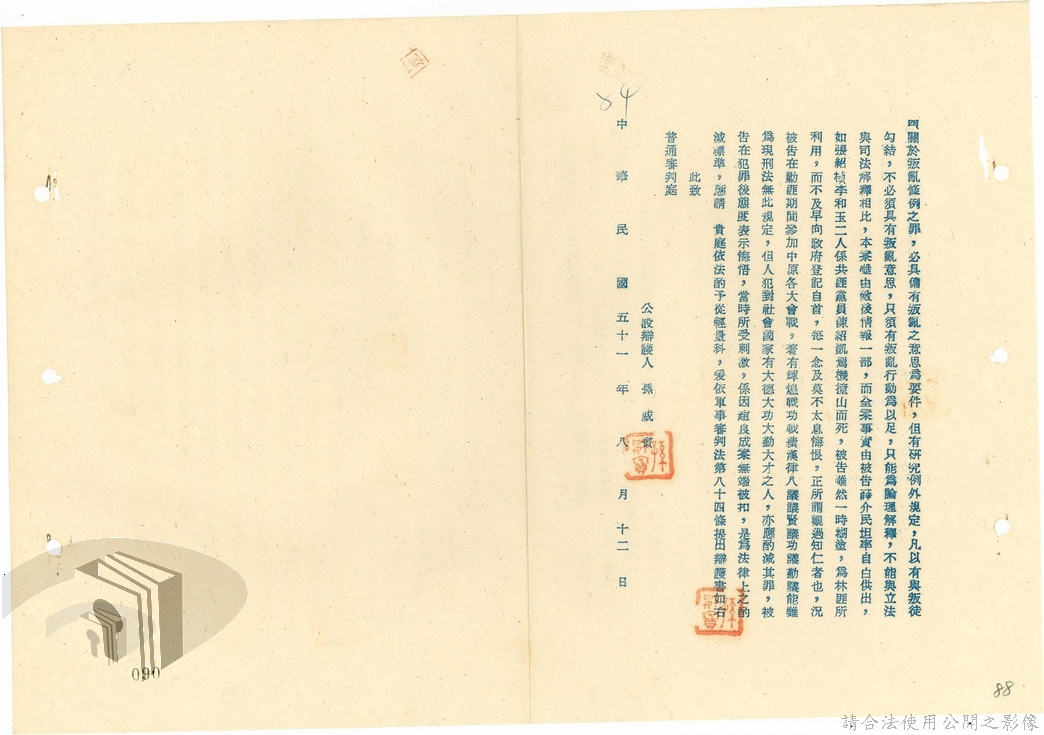 四關於叛亂條例之罪，必具備有叛亂之意思為要件，但有研究例外規定，凡以有與叛徒
勾結，不必須具有叛亂意思，只須有叛亂行動為以足，只能為論理解釋，不能與立法
與司法解釋相比，本案雖由敵後情報一部，而全案事實由被告薛介民坦率自白供出，
如張紹楨李和玉二人係共匪黨員陳紹凱駕機撞山而死，被告雖然一時糊塗，為林匪所
利用，而不及早向政府登記自首，每一念及莫不太息悔恨，正所謂觀過知仁者也，況
被告在勦匪期間參加中原各大會戰，著有輝煌戰功戰績漢律八議議賢議功議勤議能雖
為現刑法無此規定，但人犯對社會國家有大德大功大勤大才之人，亦應酌減其罪，被
告在犯罪後態度表示悔悟，當時所受刺激，係因趙良成案無端被扣，是為法律上之酌
減標準，應請　貴庭依法酌予從輕量科，爰依軍事審判法第八十四條提出辯護書如右
此致
普通審判庭
公設辯護人　孫　威　賓
中　華　民　國　五十一　年　八　月　十二　日
84
88
090
請合法使用公開之影像